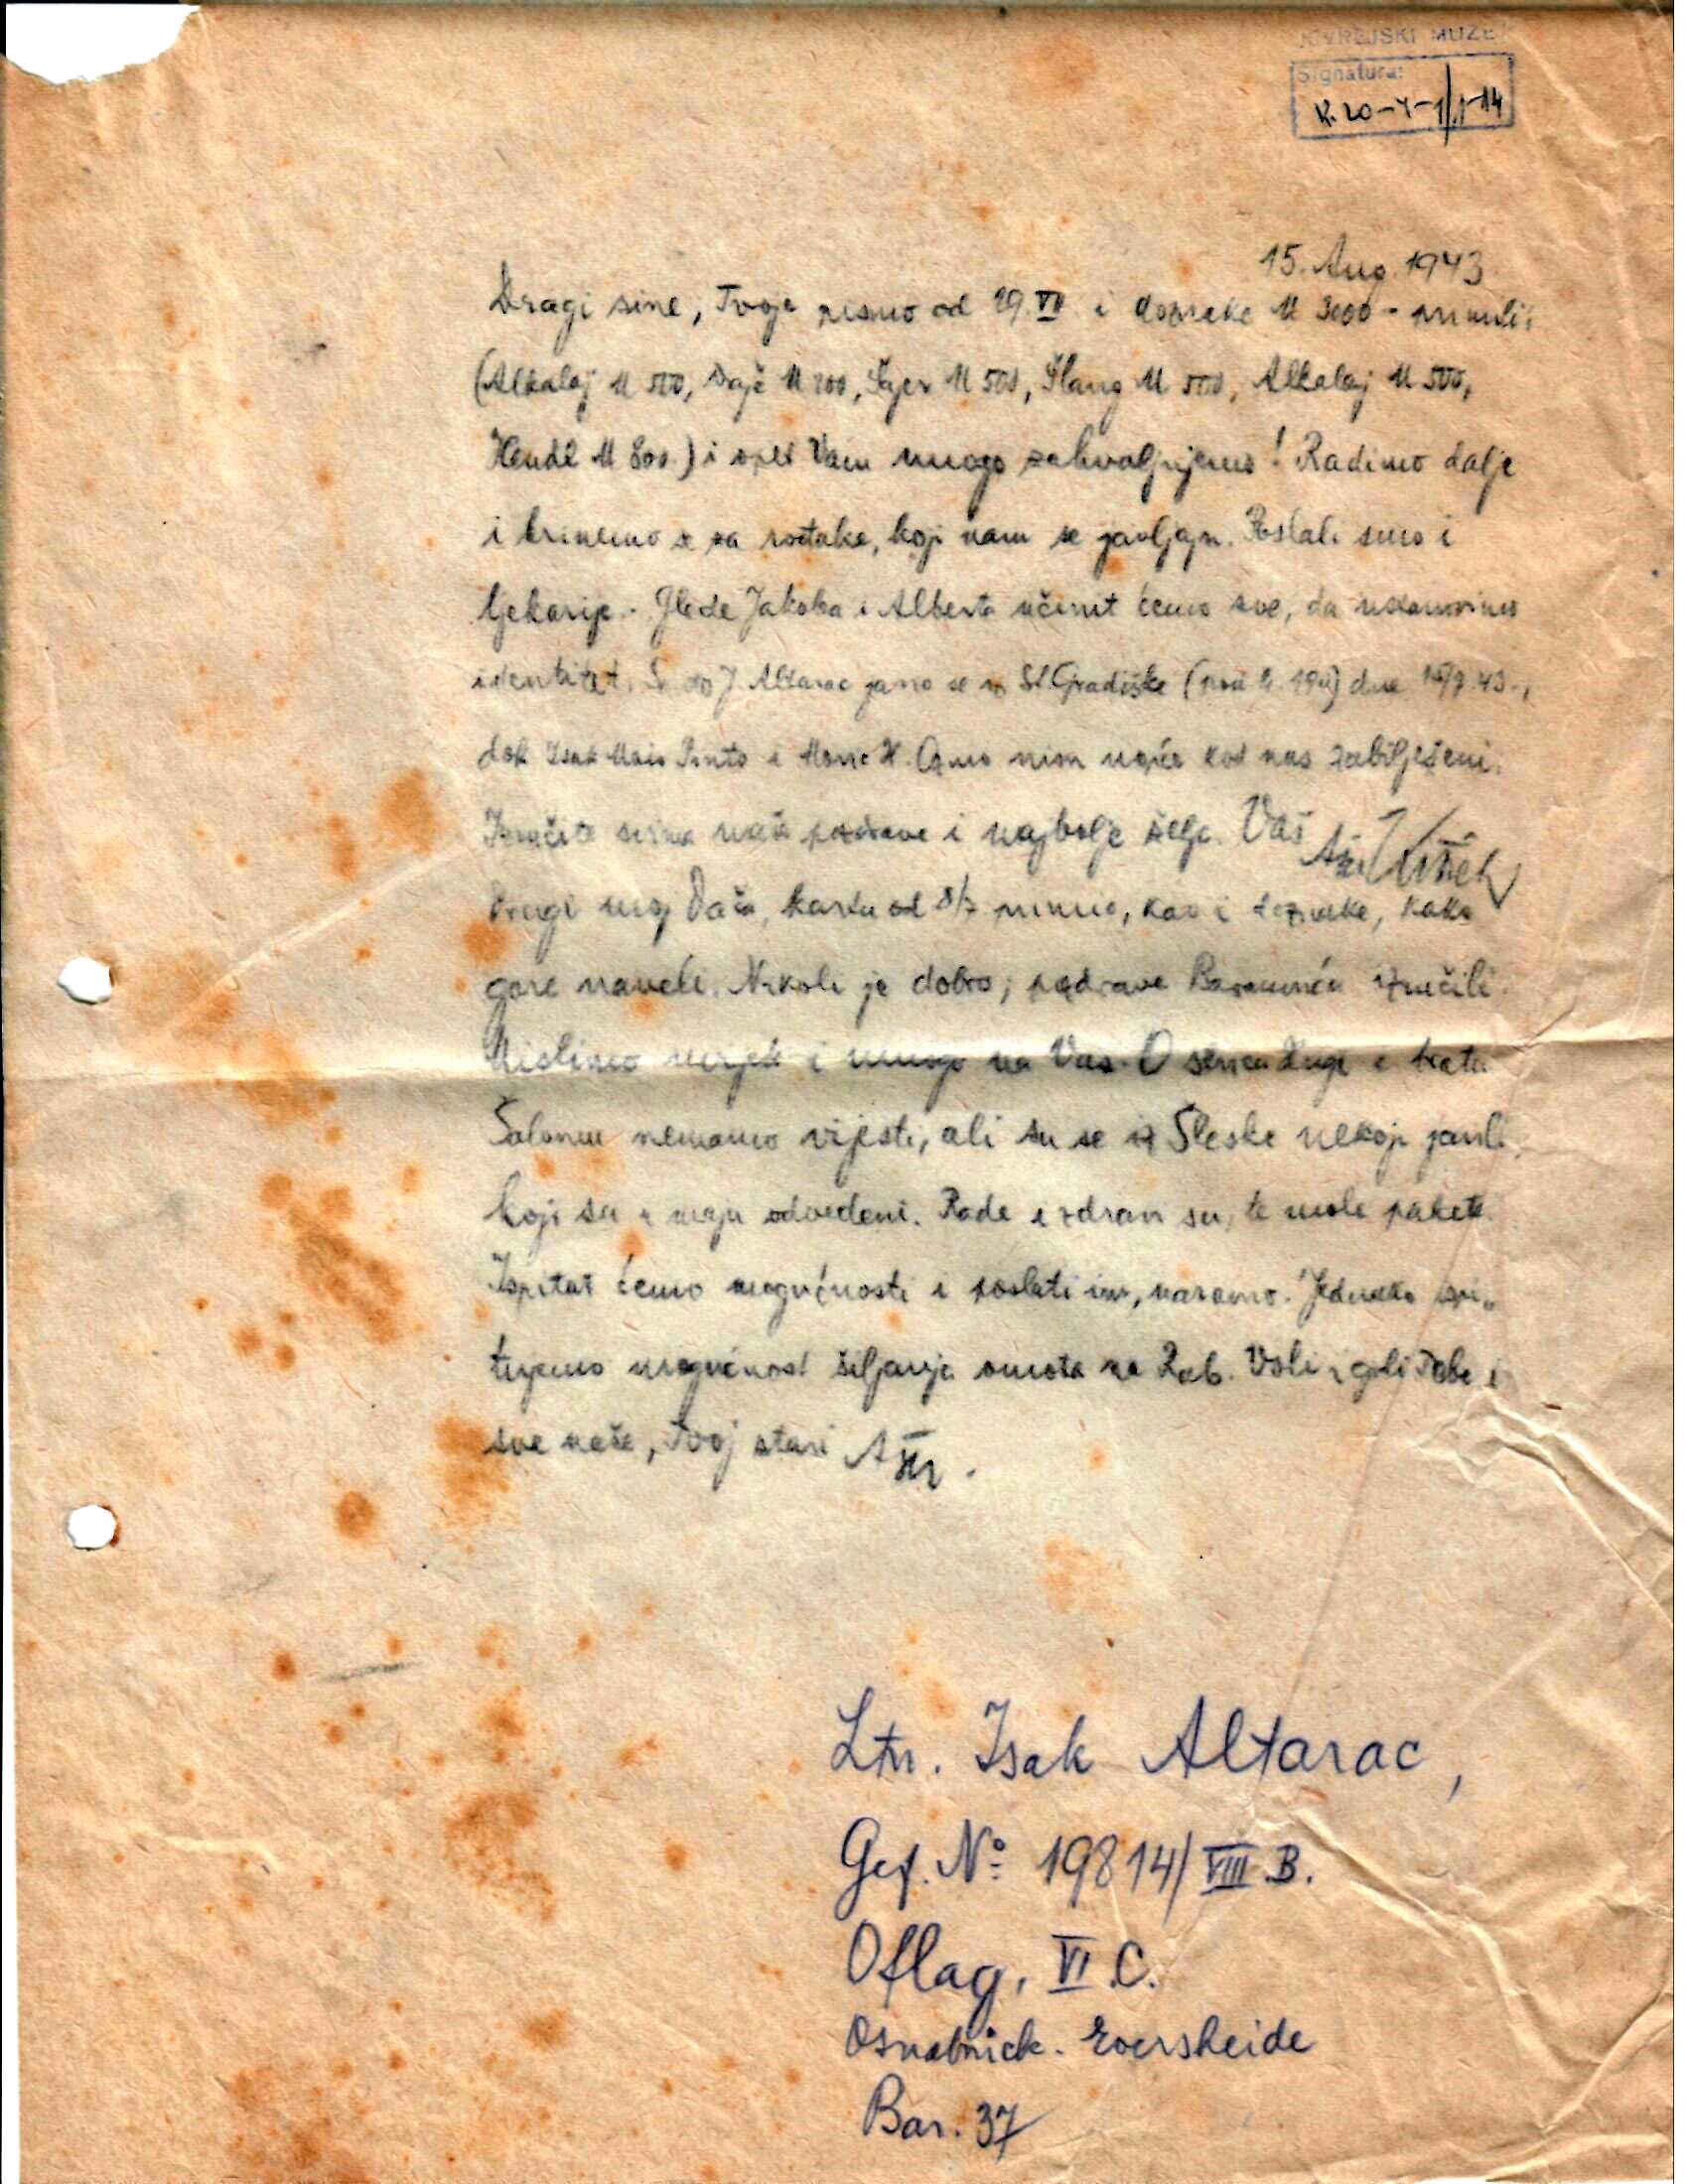 JEVREJSKI MUZEJ
Signatura:
15. Aug. 1943.
Dragi sine, Tvoje pismo od 29. VII i doznake M 3000 - primili
(Alkalaj M 500, Dajč M 200, M 500, M 500, Alkalaj M 500,
Hendl M 800.) i opet Vam mnogo zahvaljujemo! Radimo dalje
i brinemo se za rođake, koji nam se javljaju. Poslali smo i
ljekarije. Glede Jakoba i Alberta učinit ćemo sve, da ustanovimo
identitet. J. Altarac javio se iz St. Gradiške dne
dok Isak Pinto i nisu kod nas zabilježeni.
Izručite svima naše pozdrave i najbolje želje. Vaš
Dragi moj Dača, kartu od 8/7 primio, kao i doznake, kako
gore naveli. Nikoli je dobro; pozdrave izručili.
Mislimo uvijek i mnogo na Vas. O i bratu
Salomu nemamo vijesti, ali su se iz Šleske nekoji javili,
koji su u maju odvedeni. Rade i zdravi su, te mole pakete.
Ispitat ćemo mogućnosti i poslati im, naravno. Jednako ispi„
tujemo mogućnost šiljanja omota na Rab. Voli i grli Tebe i
sve naše, Tvoj stari
Ltn. Isak Altarac,
Gef. No: 19814/VIII.B.
Oflag. VI C.
Osnabrück - Eversheide
Bar. 37